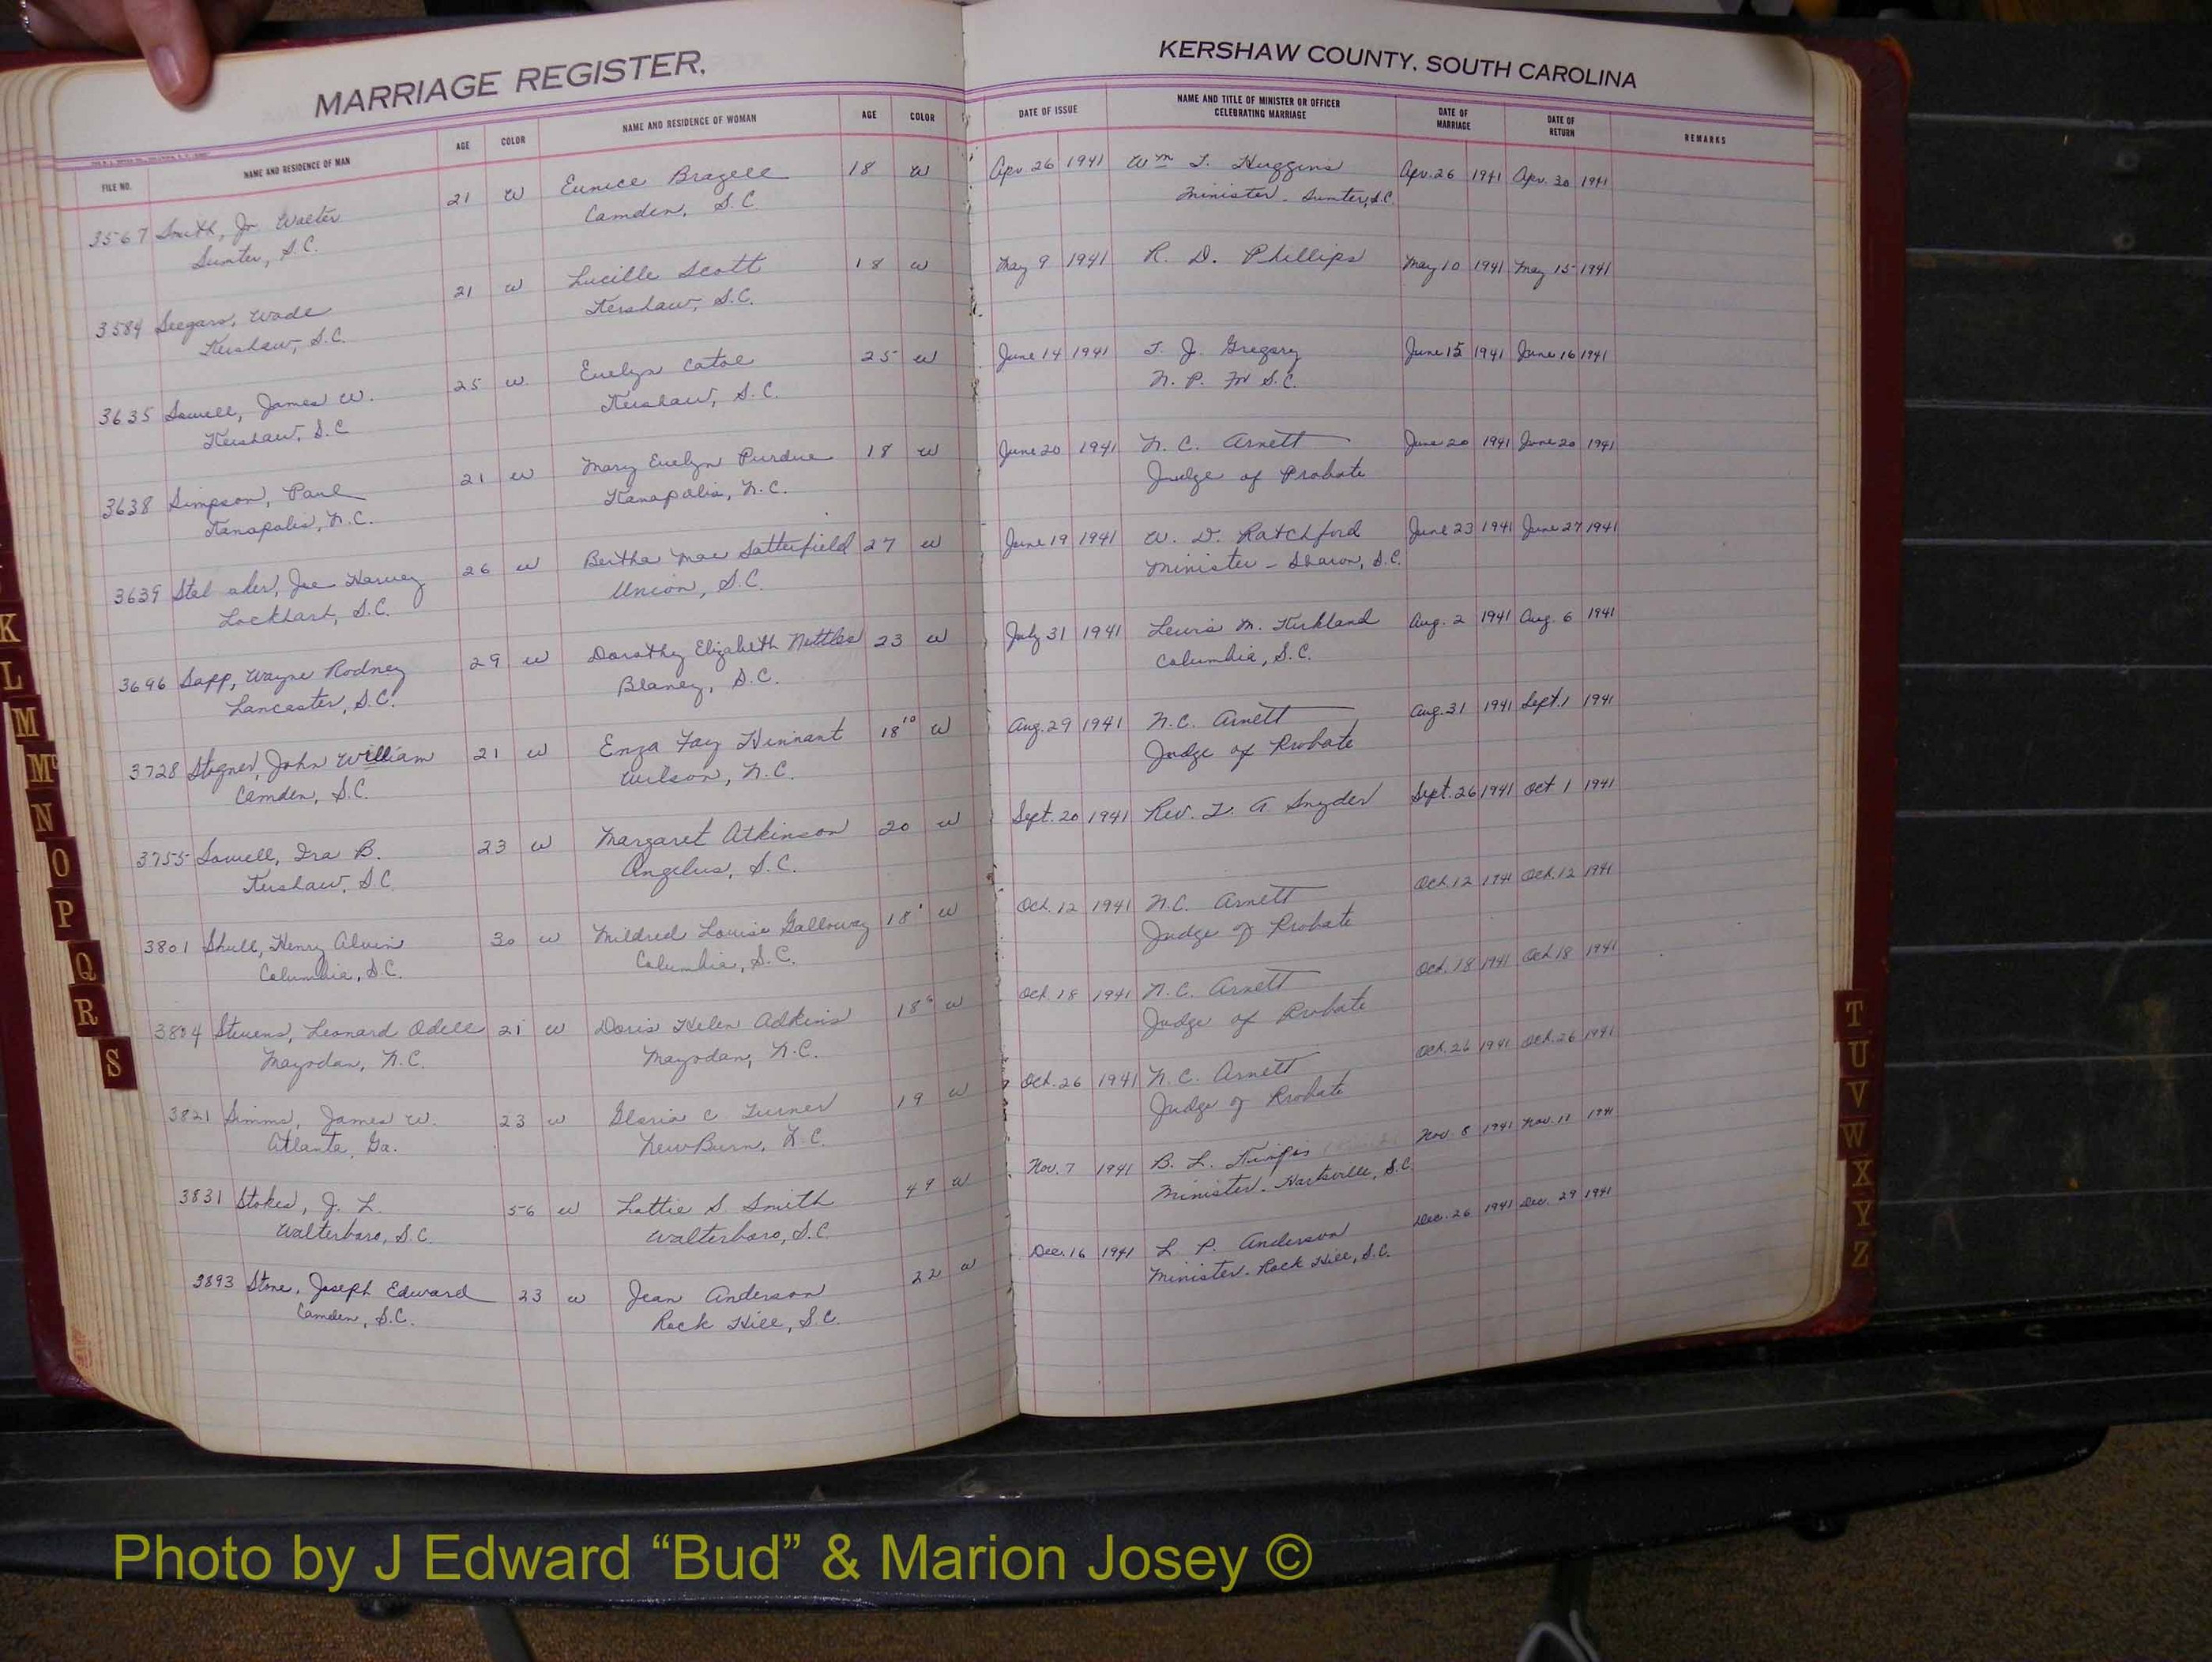 MARRIAGE REGISTER.
FILE NO. NAME AND RESIDENCE OF MAN AGE COLOR NAME AND RESIDENCE OF WOMAN AGE COLOR
3567 Smith, Jr Walter 21 W Eunice Brazell 18 W
Sumter, S.C. Camden, S.C
3584 Seegars, Wade 21 W Lucille Scott 18 W
Kershaw, S.C. Kershaw, S.C.
3635 Sowell, James W. 25 W Evelyn Catoe 25 W
Kershaw, S.C Kershaw, S.C.
3638 Simpson, Paul 21 W Mary Evelyn Purdue 18 W
Kanapolis, N.C. Kanapolis, N.C.
3639 Joe Harvey 26 W Bertha Mae Satterfield 27 W
Lockhart, S.C. Union, S.C.
3696 Sapp, Wayne Rodney 29 W Dorothy Elizabeth Nettles 23 W
Lancaster, S.C. Blaney, S.C.
3728 Stogner, John William 21 W Enza Fay Hinnant 18 10 W
Camden, S.C. Wilson, N.C.
3755 Sowell, Ira B. 23 W Margaret Atkinson 20 W
Kershaw, S.C. Angelus, S.C.
3801 Shull, Henry Alvin 30 W Mildred Louise Galloway 18 W
Columbia, S.C. Columbia, S.C.
3804 Stevens, Leonard Odell 21 W Doris Helen Adkins 18 W
Mayodan, N.C. Mayodan, N.C.
3821 Simms, James W. 23 W Gloria C Turner 19 W
Atlanta, Ga. New Burn, N.C.
3831 Stokes, J. L. 56 W Lottie S Smith 49 W
Walterboro, S.C. Walterboro, S.C.
3893 Stone, Joseph Edward 23 W Jean Anderson 22 W
Camden, S.C. Rock Hill, S.C.
KERSHAW COUNTY, SOUTH CAROLINA
DATE OF ISSUE NAME AND TITLE OF MINISTER OR OFFICER CELEBRATING MARRIAGE DATE OF MARRIAGE DATE OF RETURN REMARKS
Apr. 26 1941 Wm J. Huggins Apr. 26 1941 Apr. 30 1941
Minister - Sumter, S.C.
May 9 1941 R. D. Phillips May 10 1941 May 15 1941
June 14 1941 T. J. Gregory June 15 1941 June 16 1941
N. P. For S.C.
June 20 1941 N. C. Arnett June 20 1941 June 20 1941
Judge of Probate
June 19 1941 W. D. Ratchford June 23 1941 June 27 1941
Minister - Sharon, S.C.
July 31 1941 Lewis M. Kirkland Aug. 2 1941 Aug. 6 1941
Columbia, S.C.
Aug. 29 1941 N.C. Arnett Aug. 31 1941 Sept. 1 1941
Judge of Probate
Sept. 20 1941 Rev. L. A Snyder Sept. 26 1941 Oct 1 1941
Oct. 12 1941 N.C. Arnett Oct. 12 1941 Oct. 12 1941
Judge of Probate
Oct. 18 1941 N.C. Arnett Oct. 18 1941 Oct. 18 1941
Judge of Probate
Oct. 26 1941 N.C. Arnett Oct. 26 1941 Oct. 26 1941
Judge of Probate
Nov. 7 1941 B. L. Nov. 8 1941 Nov. 11 1941
Minister - Hartsville, S.C.
Dec. 16 1941 L. P. Anderson Dec. 26 1941 Dec. 29 1941
Minister - Rock Hill, S.C.
K
L
M
Mc
N
O
P
Q
R
S
T
U
V
W
X
Y
Z
Photo by J Edward “Bud” & Marion Josey ©